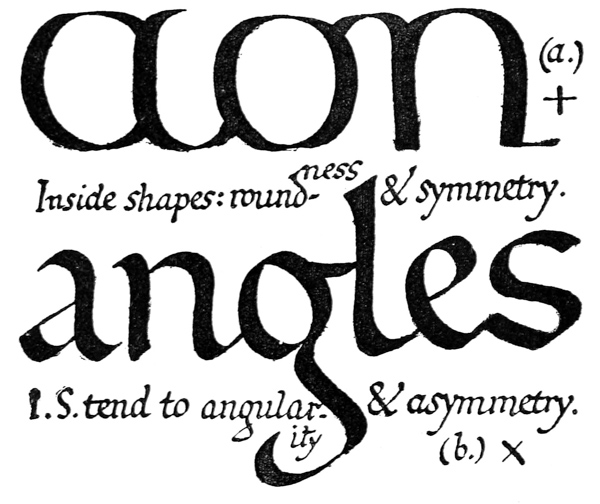 aon (a.) +
Inside shapes: round-ness & symmetry.
angles
I.S. tend to angular-ity & asymmetry.
(b.) x